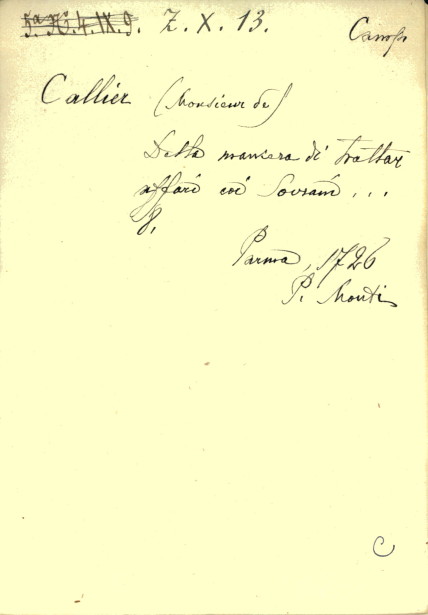 Z. X. 13.
Callier (Monsieur de)
Della maniera di trattar
affari coi Sovrani ...
8.
Parma, 1726
P. Monti
C